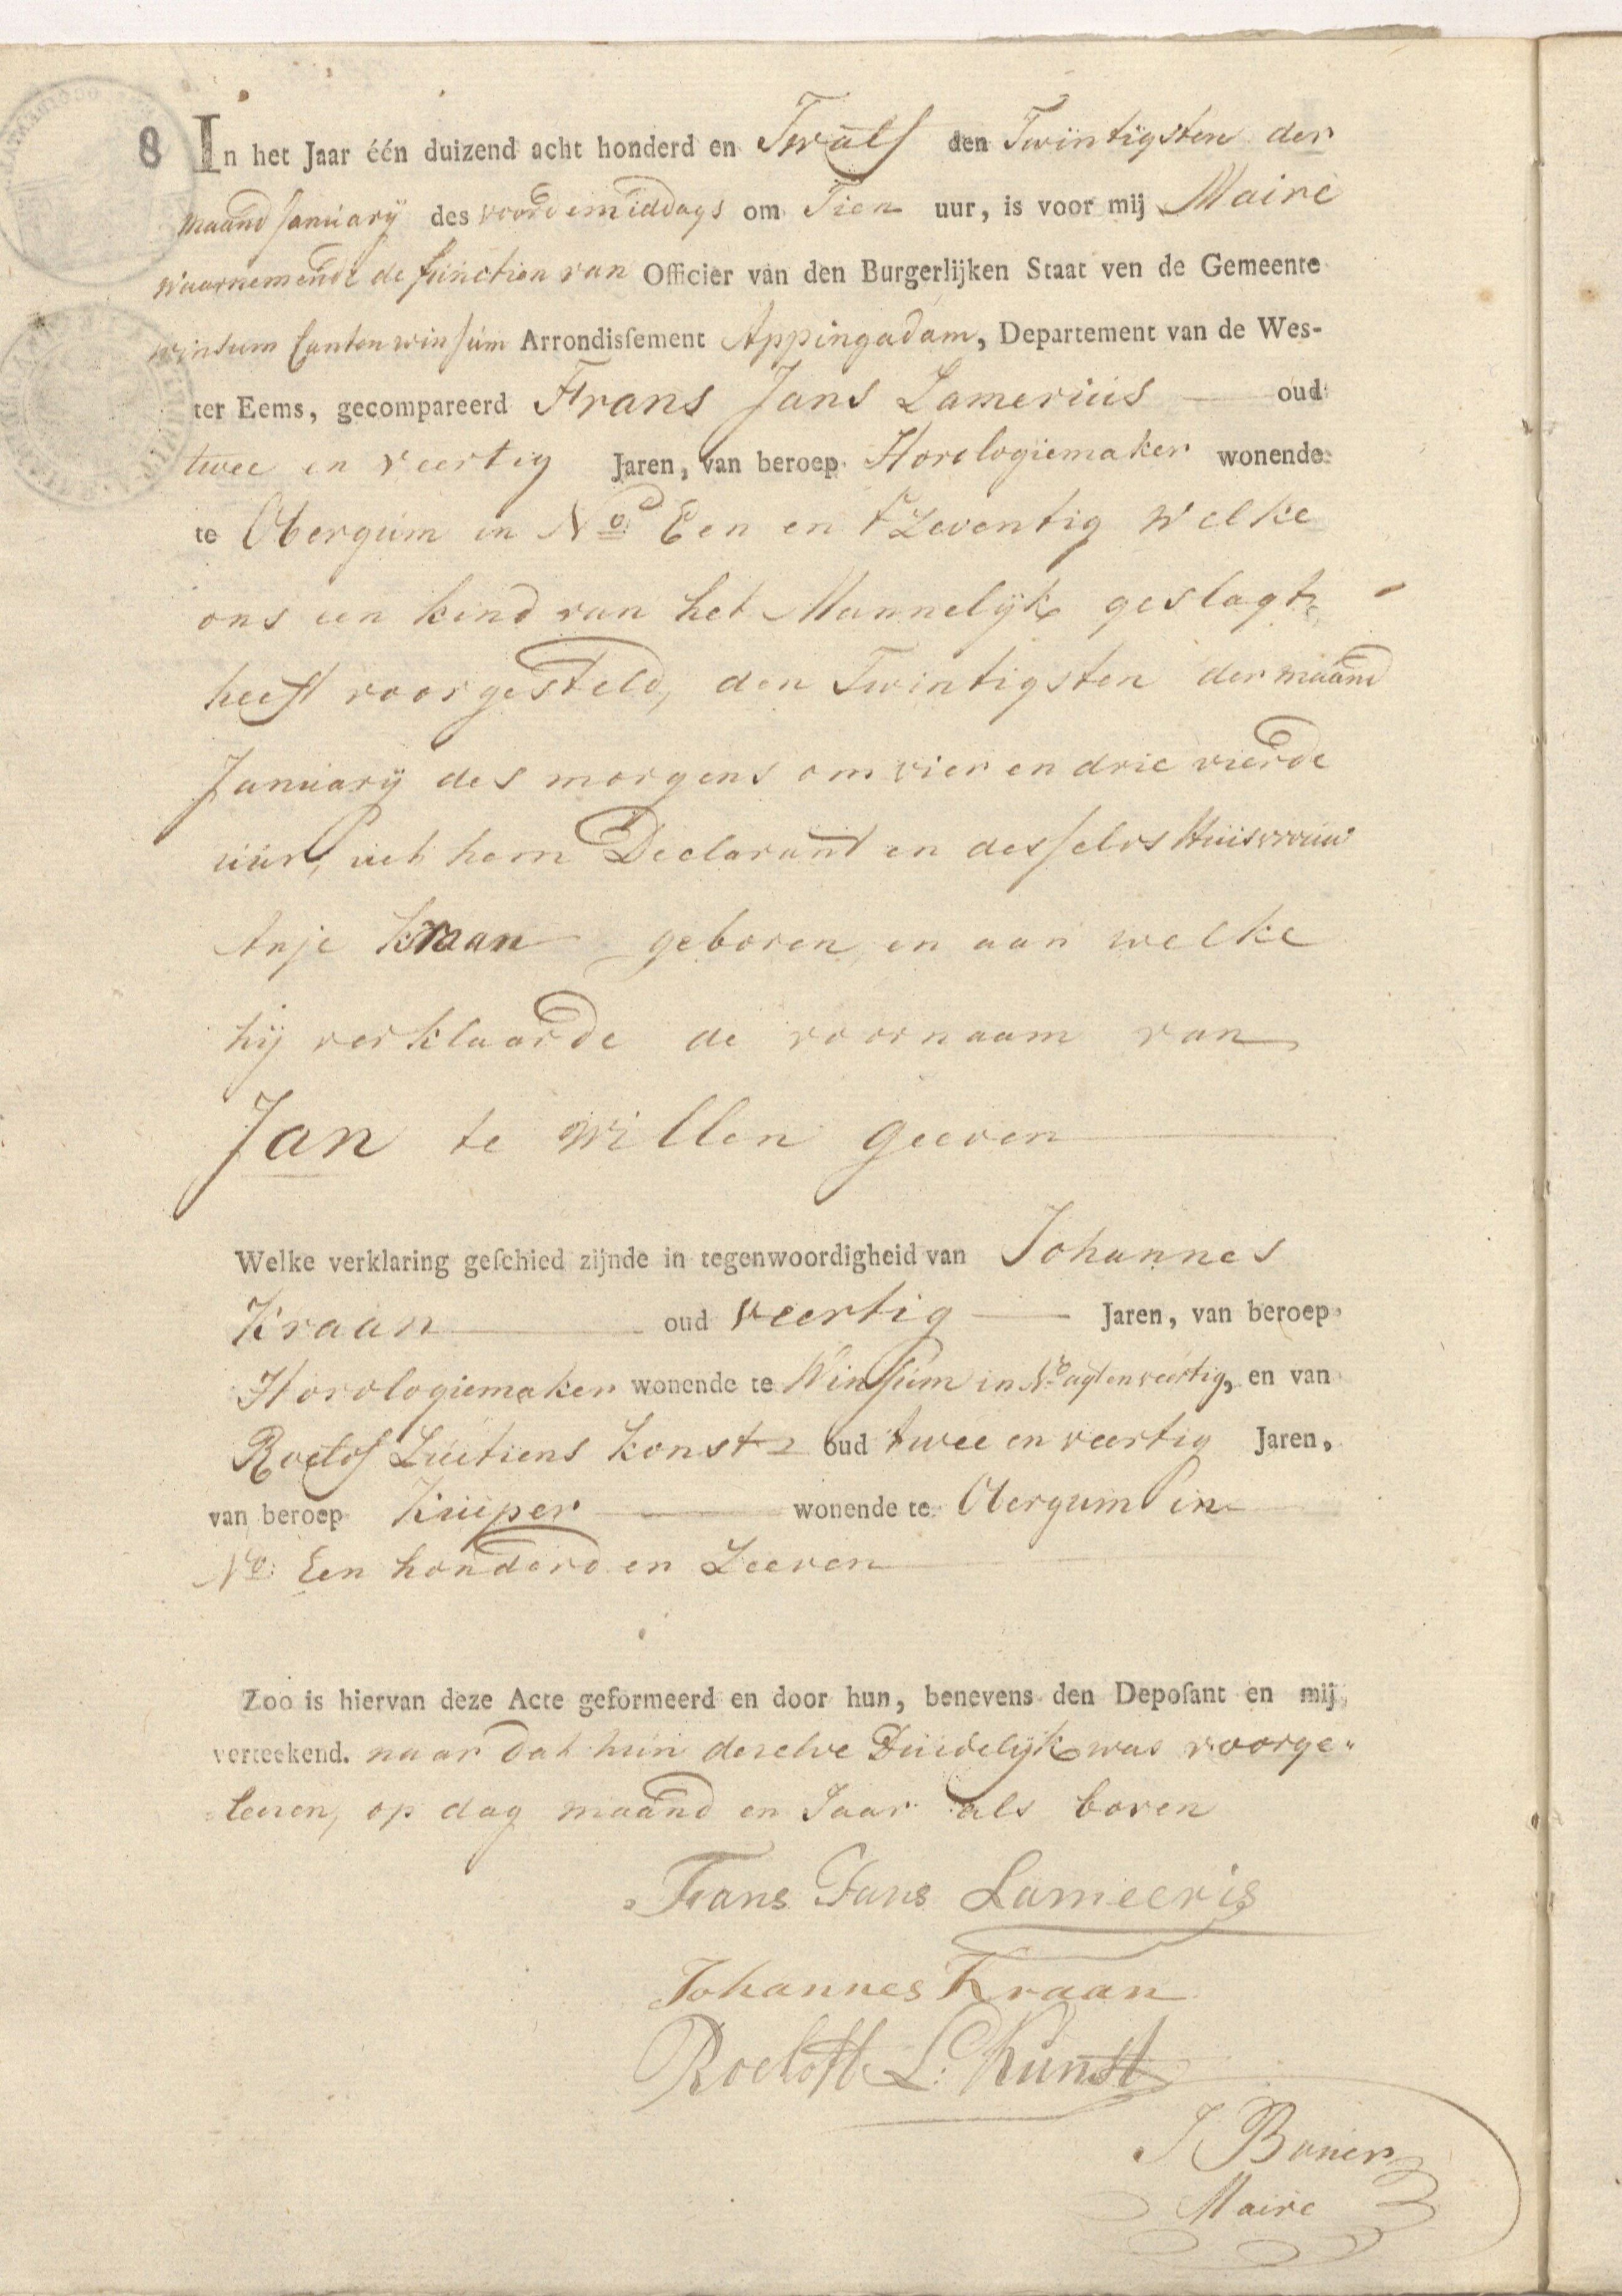 8 In het Jaar één duizend acht honderd en Twalf den Twintigsten der
maand January des voordemiddags om Tien uur, is voor mij Maire
waarnemende de function van Officier van den Burgerlijken Staat ven de Gemeente
winsum Canton winsum Arrondisſement Appingadam, Departement van de Wes-
ter Eems, gecompareerd Frans Jans Lamerius oud
twee en veertig Jaren, van beroep Horologiemaker wonende
te Obergum in No. Een en tzeventig welke
ons een kind van het Mannelijk geslagt
heeft voorgesteld, den Twintigsten der maand
January des morgens om vier en drie vierde
uur, uit hem Declarant en desselvs Huisvrouw
Anje Kraan geboren, en aan welke
hij verklaarde de voornaam van
Jan te willen geeven
Welke verklaring geſchied zijnde in tegenwoordigheid van Johannes
Kraan oud veertig Jaren, van beroep
Horologiemaker wonende te Winsum in No. agt en veertig, en van
Roelof Luitiens Konst oud twee en veertig Jaren,
van beroep Kuiper wonende te Obergum in
No: Een honderd en Zeeven
Zoo is hiervan deze Acte geformeerd en door hun, benevens den Depoſant en mij,
verteekend. naar dat hun deselve Duidelijk was voorge-
leesen, op dag maand en Jaar als boven
Frans Jans Lameeris
Johannes Kraan
Roeloff L: Kunst
Maire